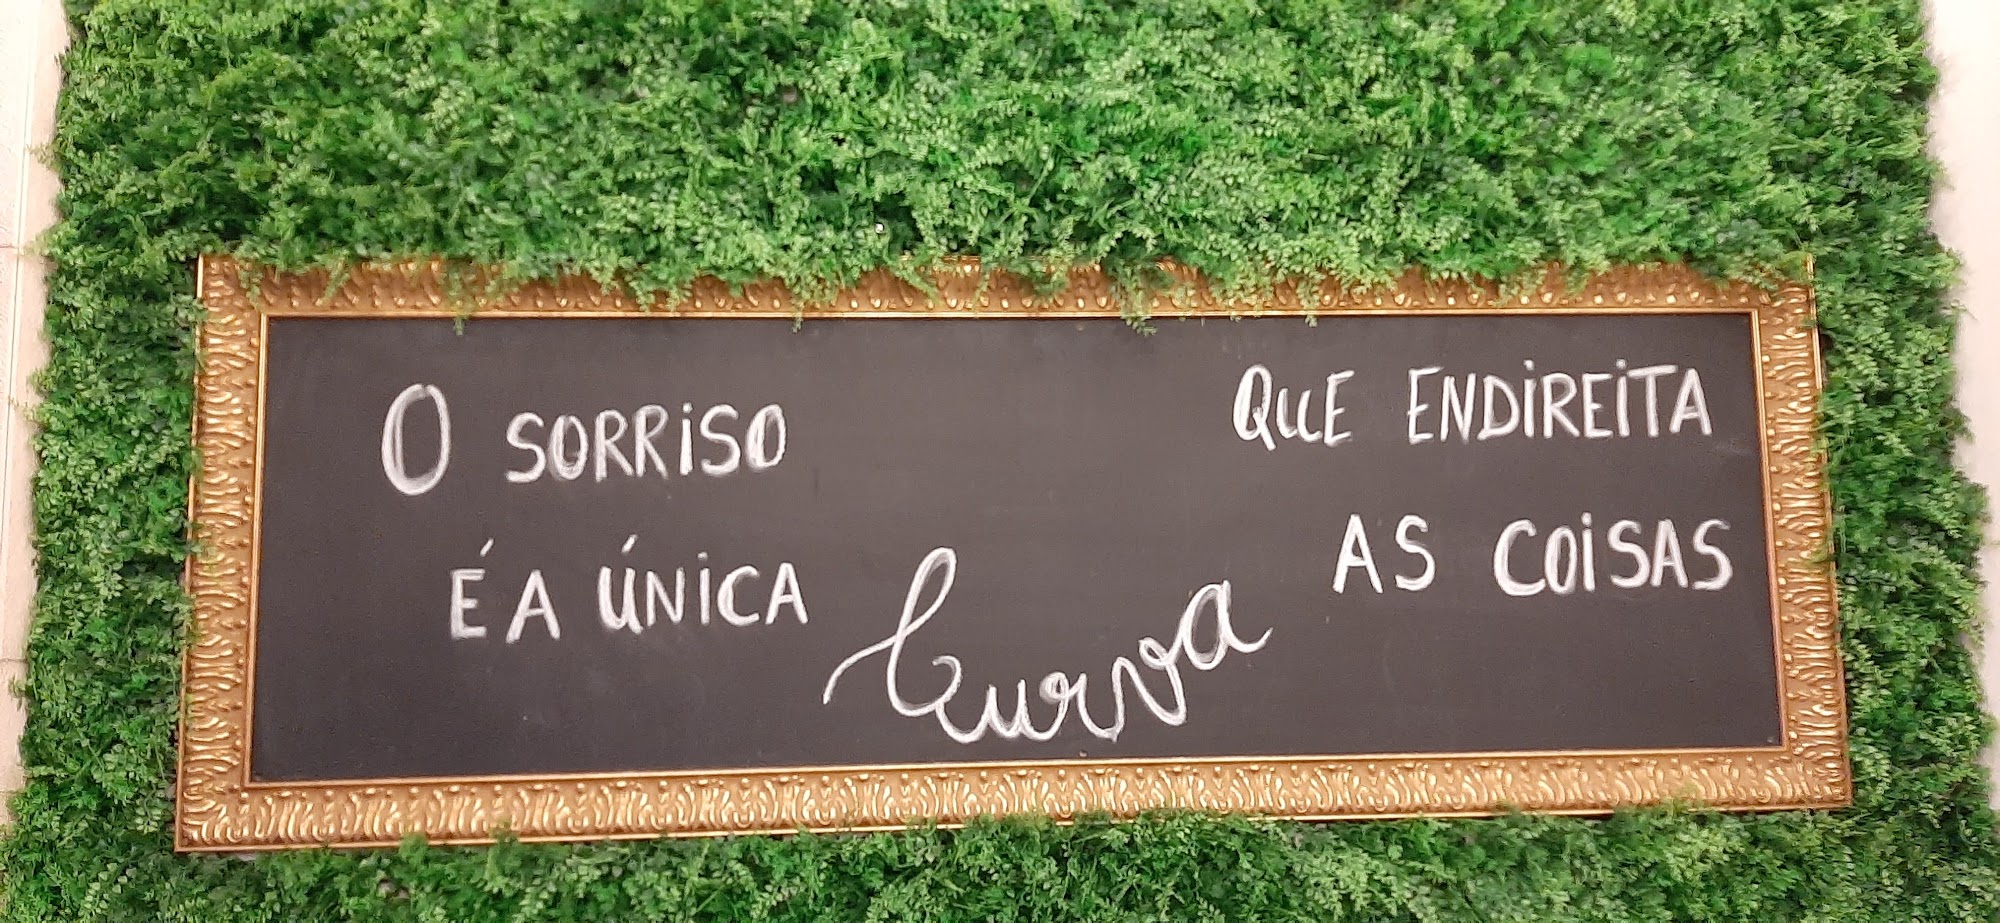 O SORRISO
É A ÚNICA
Curva
QUE ENDIREITA
AS COISAS